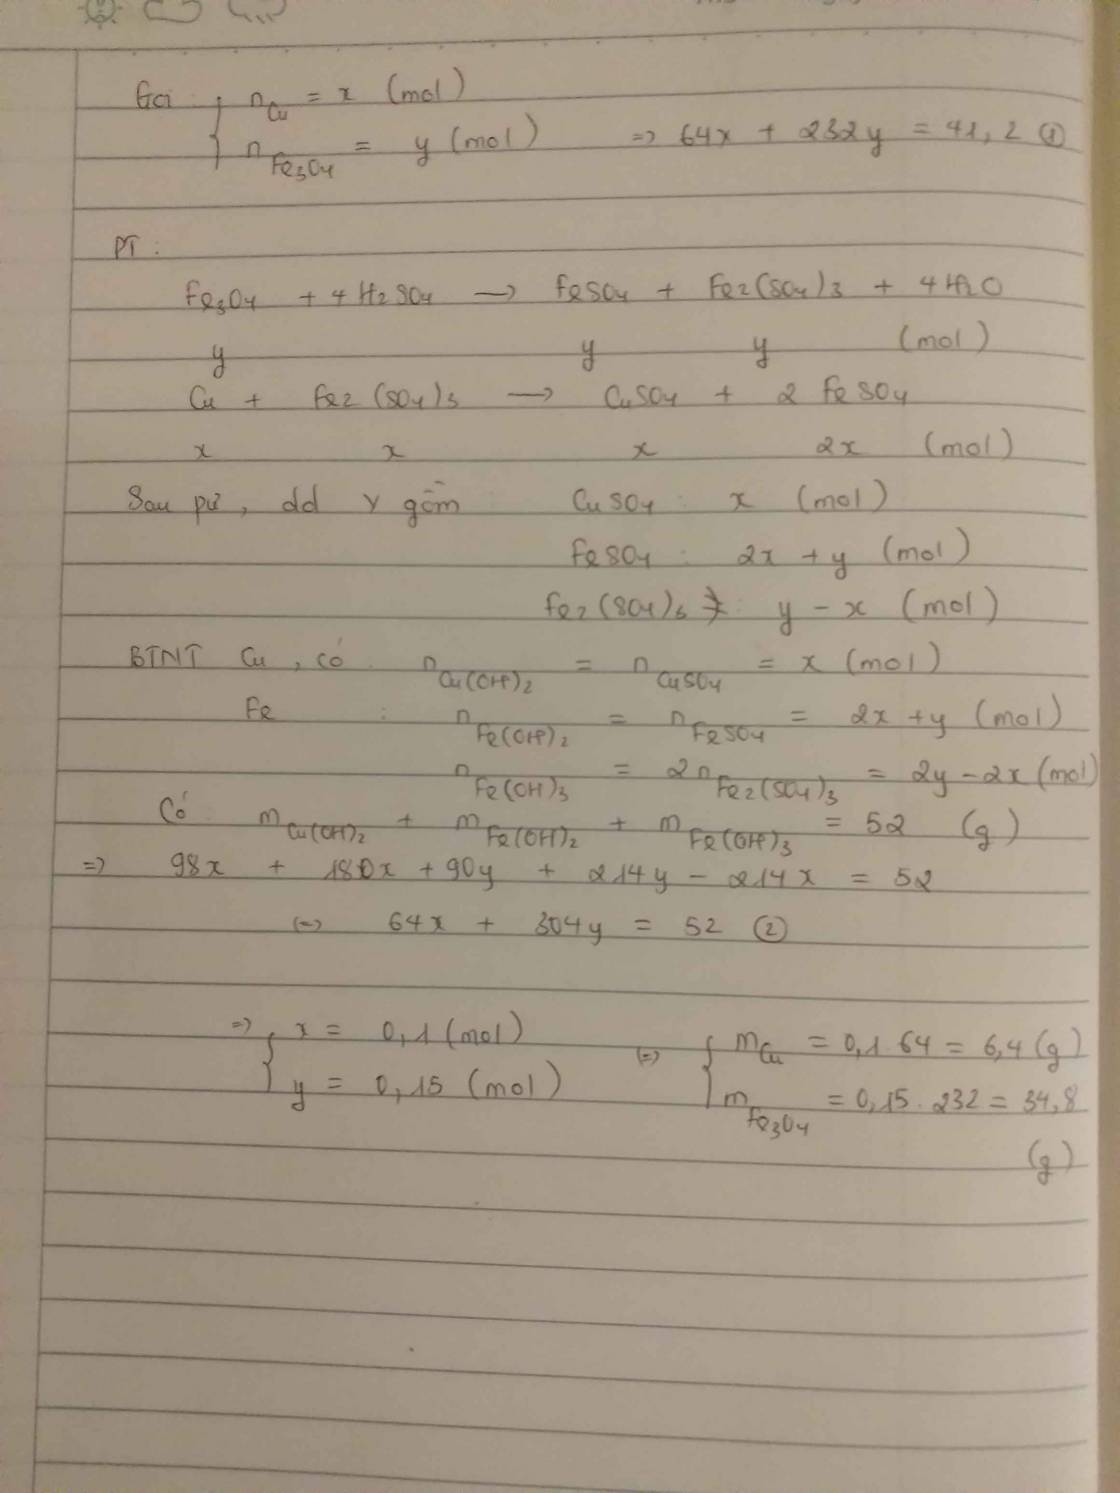 Gọi { nCu = x (mol)
nFe3O4 = y (mol) => 64x + 232y = 41,2 ①
PT :
Fe3O4 + 4H2SO4 → FeSO4 + Fe2(SO4)3 + 4H2O
y y y (mol)
Cu + Fe2(SO4)3 → CuSO4 + 2FeSO4
x x x 2x (mol)
Sau pư, dd Y gồm CuSO4 : x (mol)
FeSO4 : 2x + y (mol)
Fe2(SO4)3 : y - x (mol)
BTNT Cu, có nCu(OH)2 = nCuSO4 = x (mol)
Fe : nFe(OH)2 = nFeSO4 = 2x + y (mol)
nFe(OH)3 = 2nFe2(SO4)3 = 2y - 2x (mol)
Có mCu(OH)2 + mFe(OH)2 + mFe(OH)3 = 52 (g)
=> 98x + 180x + 90y + 214y - 214x = 52
(=) 64x + 304y = 52 ②
=> { x = 0,1 (mol) (=) { mCu = 0,1.64 = 6,4 (g)
y = 0,15 (mol) mFe3O4 = 0,15.232 = 34,8
(g)